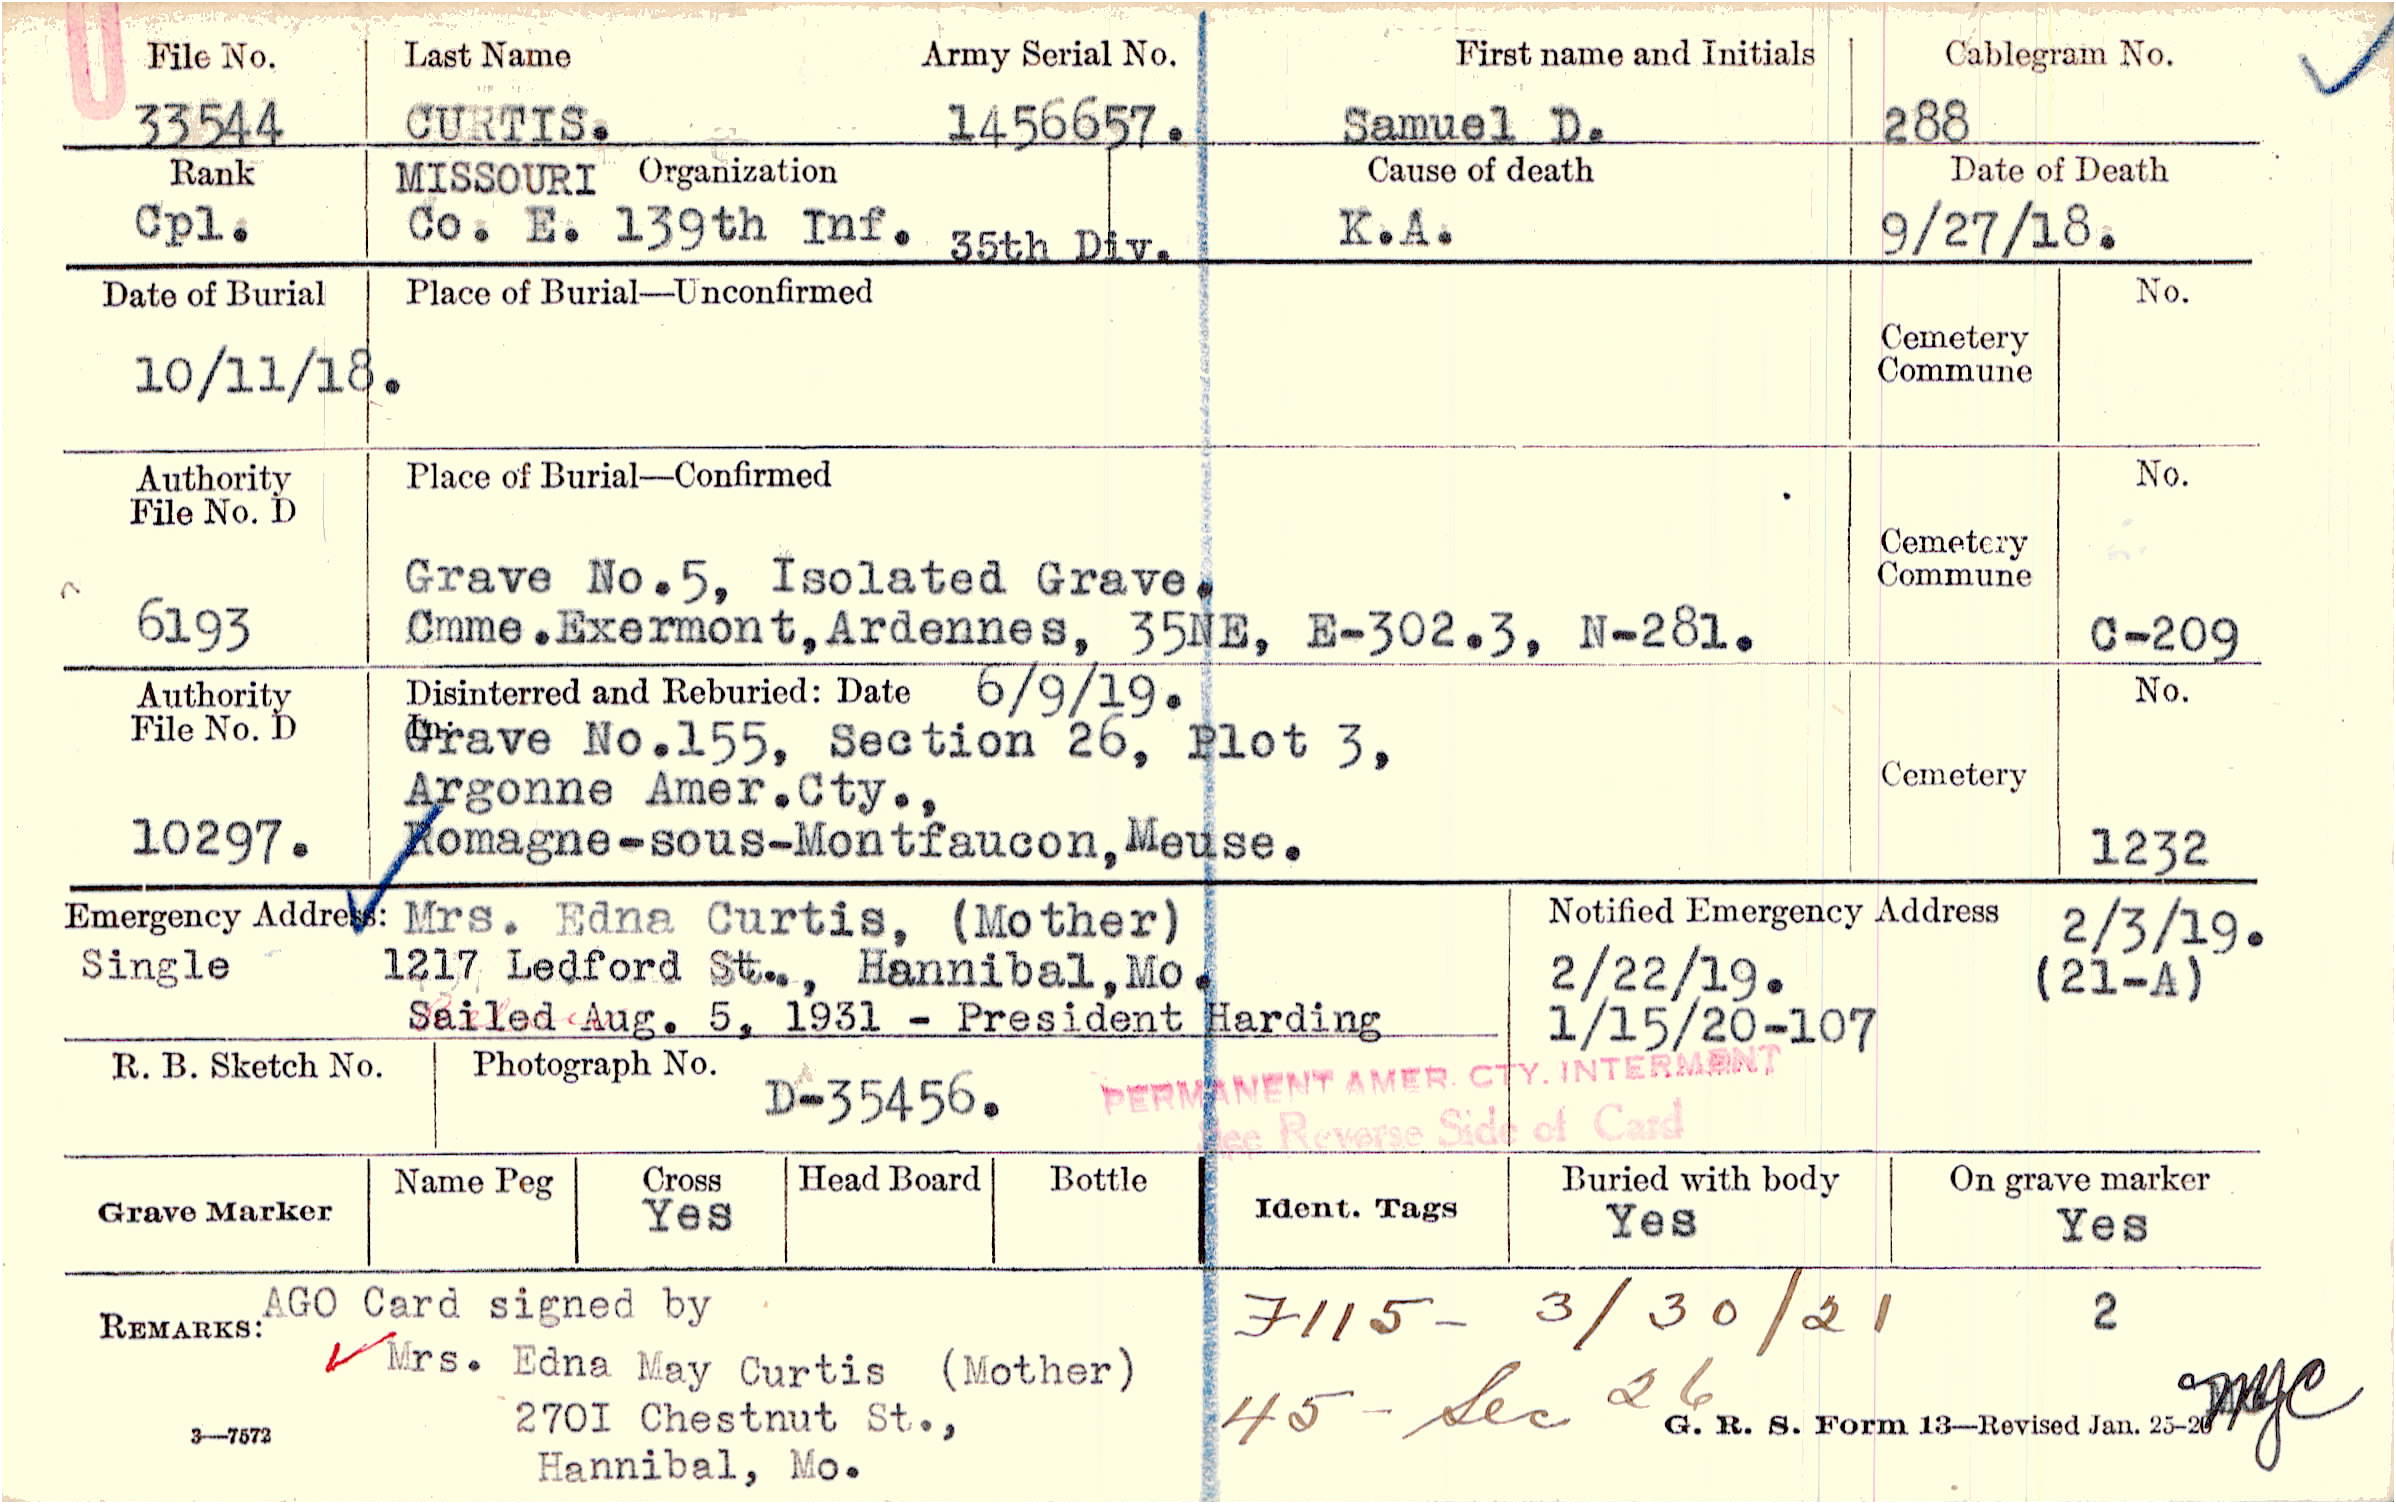 File No. Last Name Army Serial No. First name and Initials Cablegram No.
33544 CURTIS. 1456657. Samuel D. 288
Rank MISSOURI Organization Cause of death Date of Death
Cpl. Co. E. 139th Inf. 35th Div. K.A. 9/27/18.
Date of Burial Place of Burial—Unconfirmed No.
Cemetery
Commune
10/11/18.
Authority Place of Burial—Confirmed No.
File No. D
Cemetery
Commune
Grave No.5, Isolated Grave.
6193 Cmme.Exermont,Ardennes, 35NE, E-302.3, N-281. C-209
Authority Disinterred and Reburied: Date 6/9/19. No.
File No. D In:
Grave No.155, Section 26, Plot 3,
Cemetery
Argonne Amer.Cty.,
10297. Romagne-sous-Montfaucon,Meuse. 1232
Emergency Address: Mrs. Edna Curtis, (Mother) Notified Emergency Address 2/3/19.
Single 1217 Ledford St., Hannibal,Mo. 2/22/19. (21-A)
Sailed Aug. 5, 1931 - President Harding 1/15/20-107
R. B. Sketch No. Photograph No. D-35456.
PERMANENT AMER. CTY. INTERMENT
See Reverse Side of Card
Grave Marker Name Peg Cross Head Board Bottle Ident. Tags Buried with body On grave marker
Yes Yes Yes
REMARKS: AGO Card signed by 7115- 3/30/21 2
Mrs. Edna May Curtis (Mother)
2701 Chestnut St., 45 - Sec 26
Hannibal, Mo.
3—7572 G. R. S. Form 13—Revised Jan. 25-20